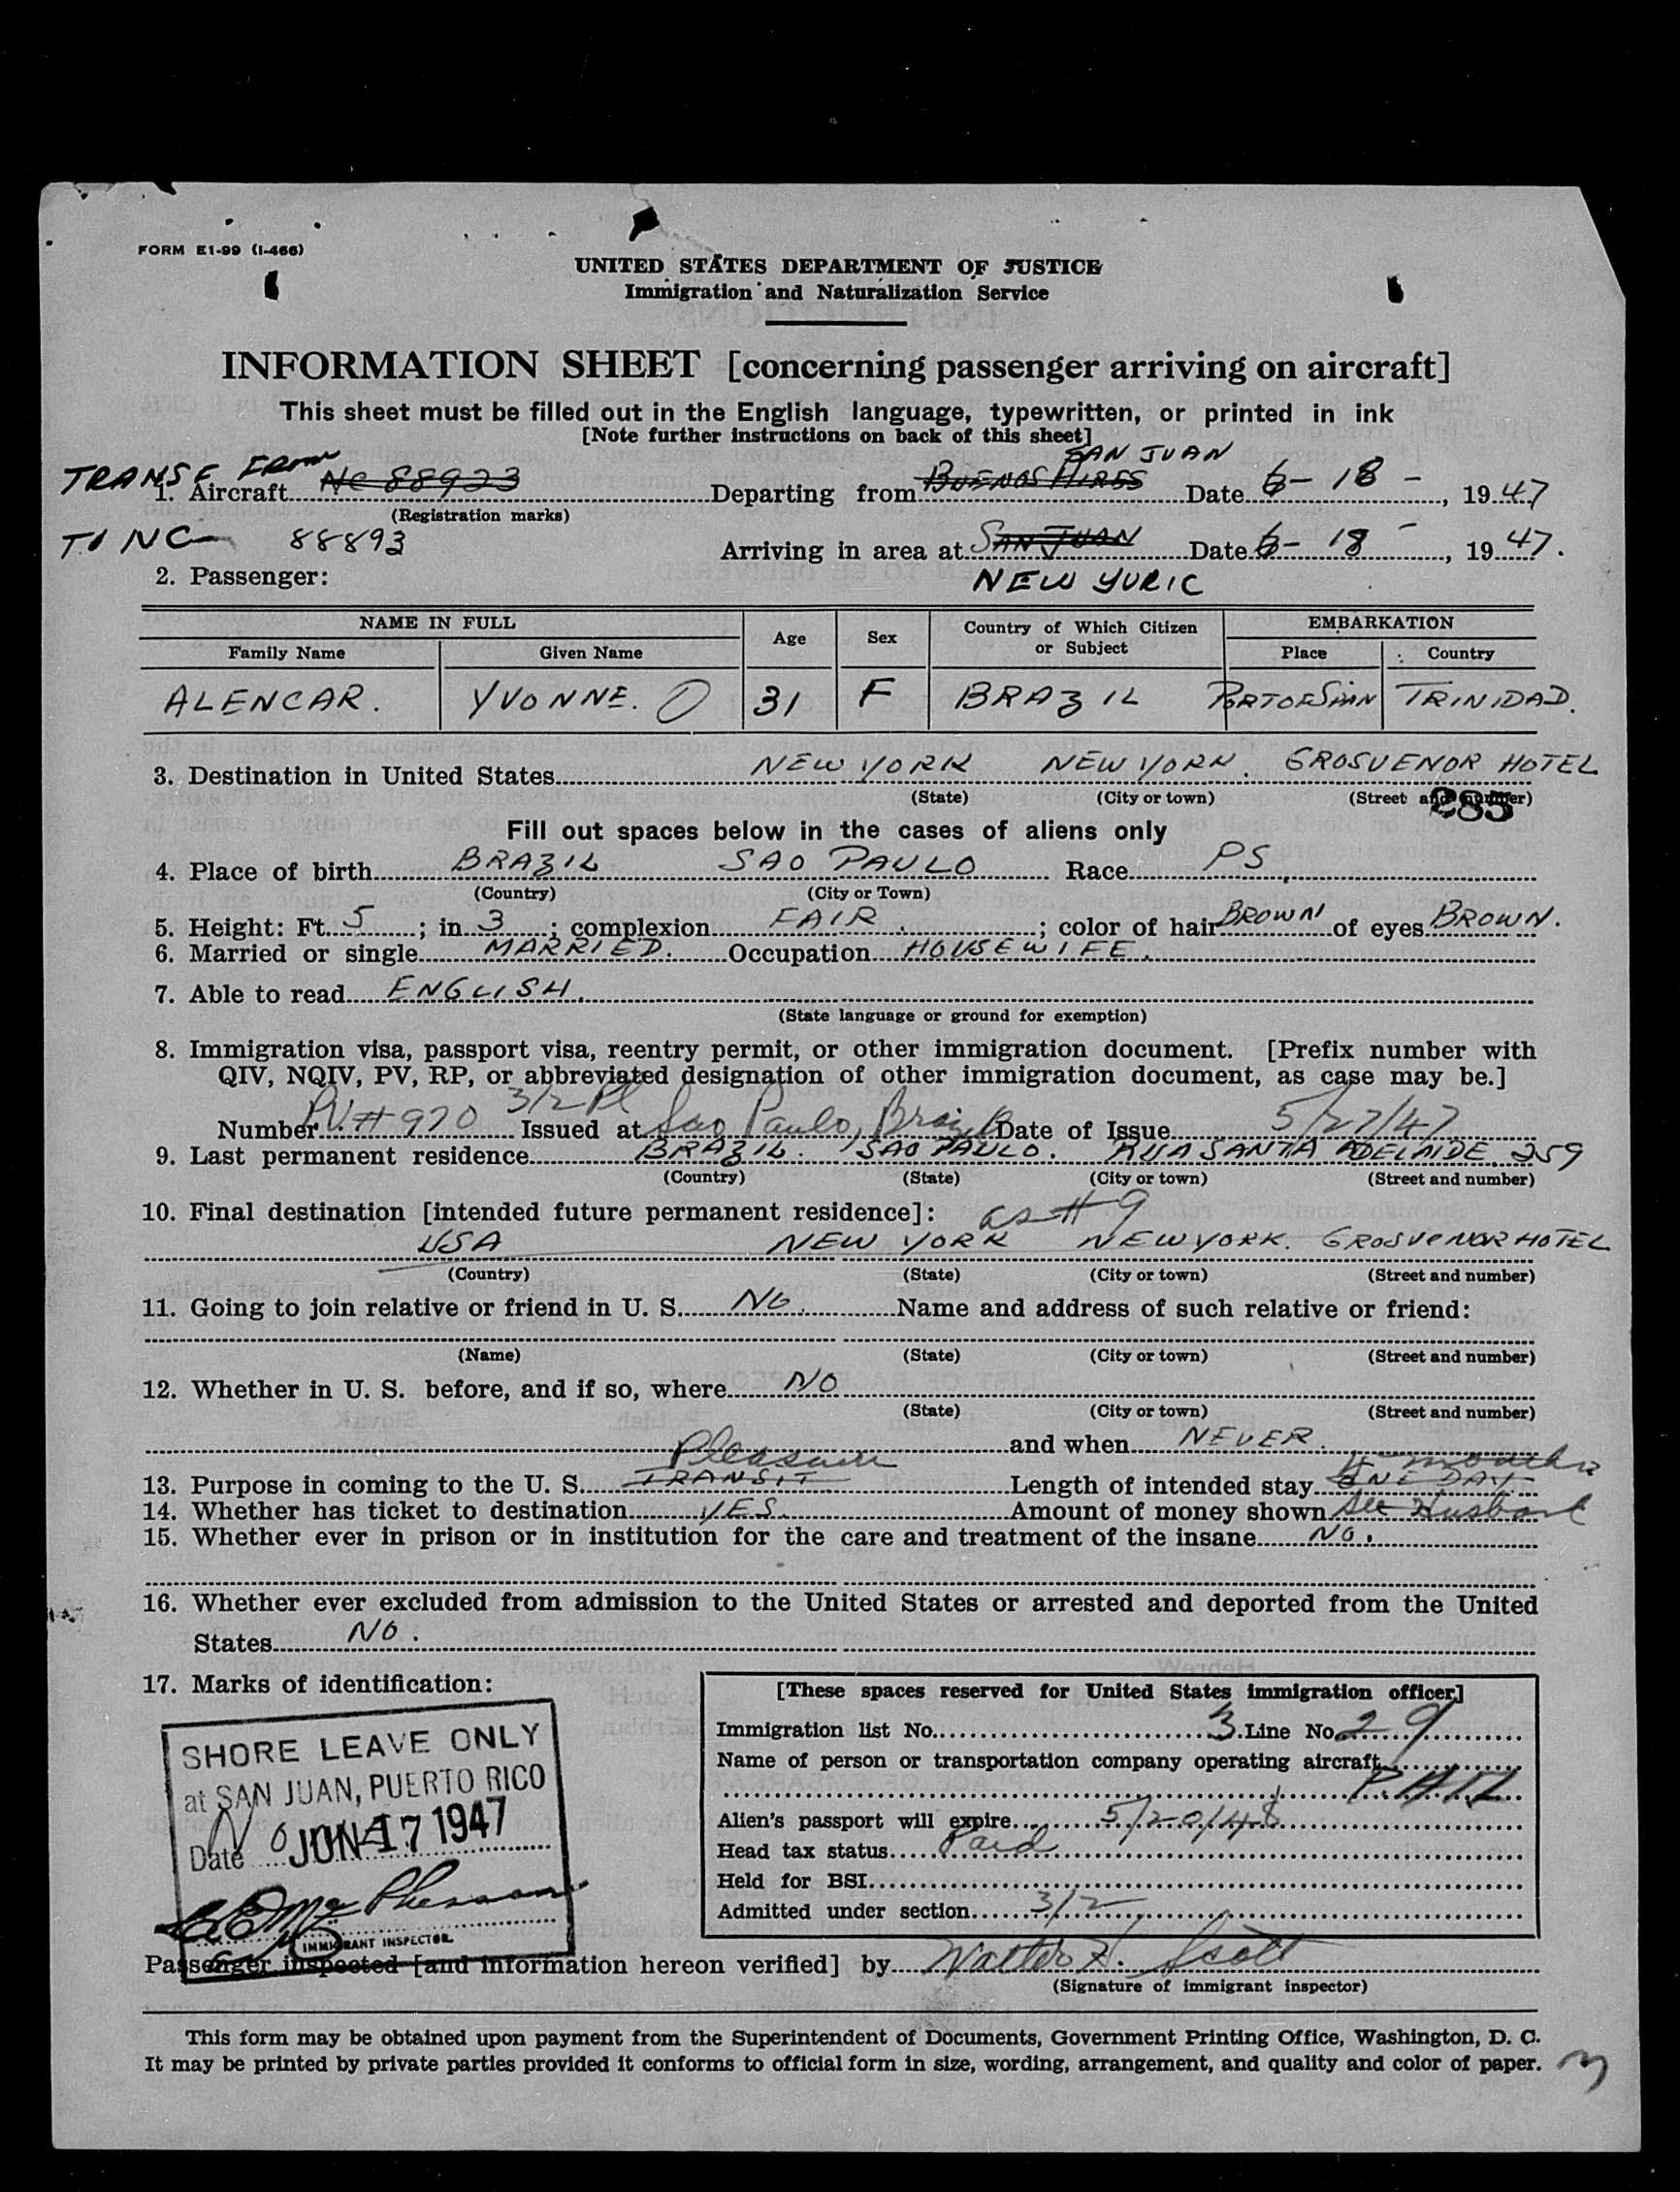 FORM E1-99 (I-466)
UNITED STATES DEPARTMENT OF JUSTICE
Immigration and Naturalization Service
INFORMATION SHEET [concerning passenger arriving on aircraft]
This sheet must be filled out in the English language, typewritten, or printed in ink
[Note further instructions on back of this sheet]
TRANSF FROM SAN JUAN
1. Aircraft NC 88923 Departing from BUENOS AIRES Date 6-18-, 1947
(Registration marks)
TO NC 88893 Arriving in area at SAN JUAN Date 6-18-, 1947.
2. Passenger: NEW YORK
NAME IN FULL Age Sex Country of Which Citizen or Subject EMBARKATION
Family Name Given Name Place Country
ALENCAR. YVONNE. O 31 F BRAZIL PORTOFSPAIN TRINIDAD.
3. Destination in United States NEW YORK NEW YORK. GROSVENOR HOTEL
(State) (City or town) (Street and number)
285
Fill out spaces below in the cases of aliens only
4. Place of birth BRAZIL SAO PAULO Race PS
(Country) (City or Town)
5. Height: Ft. 5; in. 3; complexion FAIR; color of hair BROWN of eyes BROWN.
6. Married or single MARRIED. Occupation HOUSEWIFE.
7. Able to read ENGLISH.
(State language or ground for exemption)
8. Immigration visa, passport visa, reentry permit, or other immigration document. [Prefix number with
QIV, NQIV, PV, RP, or abbreviated designation of other immigration document, as case may be.]
Number PV# 970 3/2 Pl Issued at Sao Paulo, Brazil Date of Issue 5/27/47
9. Last permanent residence BRAZIL. SAO PAULO. RUA SANTA ADELAIDE. 259
(Country) (State) (City or town) (Street and number)
10. Final destination [intended future permanent residece]: as # 9
USA NEW YORK NEW YORK. GROSVENOR HOTEL
(Country) (State) (City or town) (Street and number)
11. Going to join relative or friend in U. S. NO. Name and address of such relative or friend:
(Name) (State) (City or town) (Street and number)
12. Whether in U. S. before, and if so, where NO
(State) (City or town) (Street and number)
and when NEVER.
Pleasure months
13. Purpose in coming to the U. S. TRANSIT Length of intended stay ONE DAY.
14. Whether has ticket to destination YES. Amount of money shown see Husband
15. Whether ever in prison or in institution for the care and treatment of the insane NO.
16. Whether ever excluded from admission to the United States or arrested and deported from the United
States NO.
17. Marks of identification:
SHORE LEAVE ONLY
at SAN JUAN, PUERTO RICO
Date JUN 17 1947
IMMIGRANT INSPECTOR.
[These spaces reserved for United States immigration officer]
Immigration list No. 3 Line No. 29
Name of person or transportation company operating aircraft
Alien's passport will expire 5/20/48
Head tax status Paid
Held for BSI
Admitted under section 3/2
Passenger inspected [and information hereon verified] by Walter H. Scott
(Signature of immigrant inspector)
This form may be obtained upon payment from the Superintendent of Documents, Government Printing Office, Washington, D. C.
It may be printed by private parties provided it conforms to official form in size, wording, arrangement, and quality and color of paper.